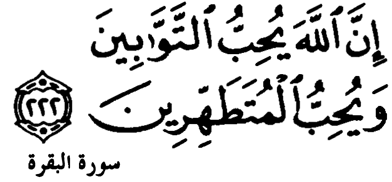 إِنَّ ٱللَّهَ يُحِبُّ ٱلتَّوَّٰبِينَ
وَيُحِبُّ ٱلۡمُتَطَهِّرِينَ ٢٢٢
سورة البقرة